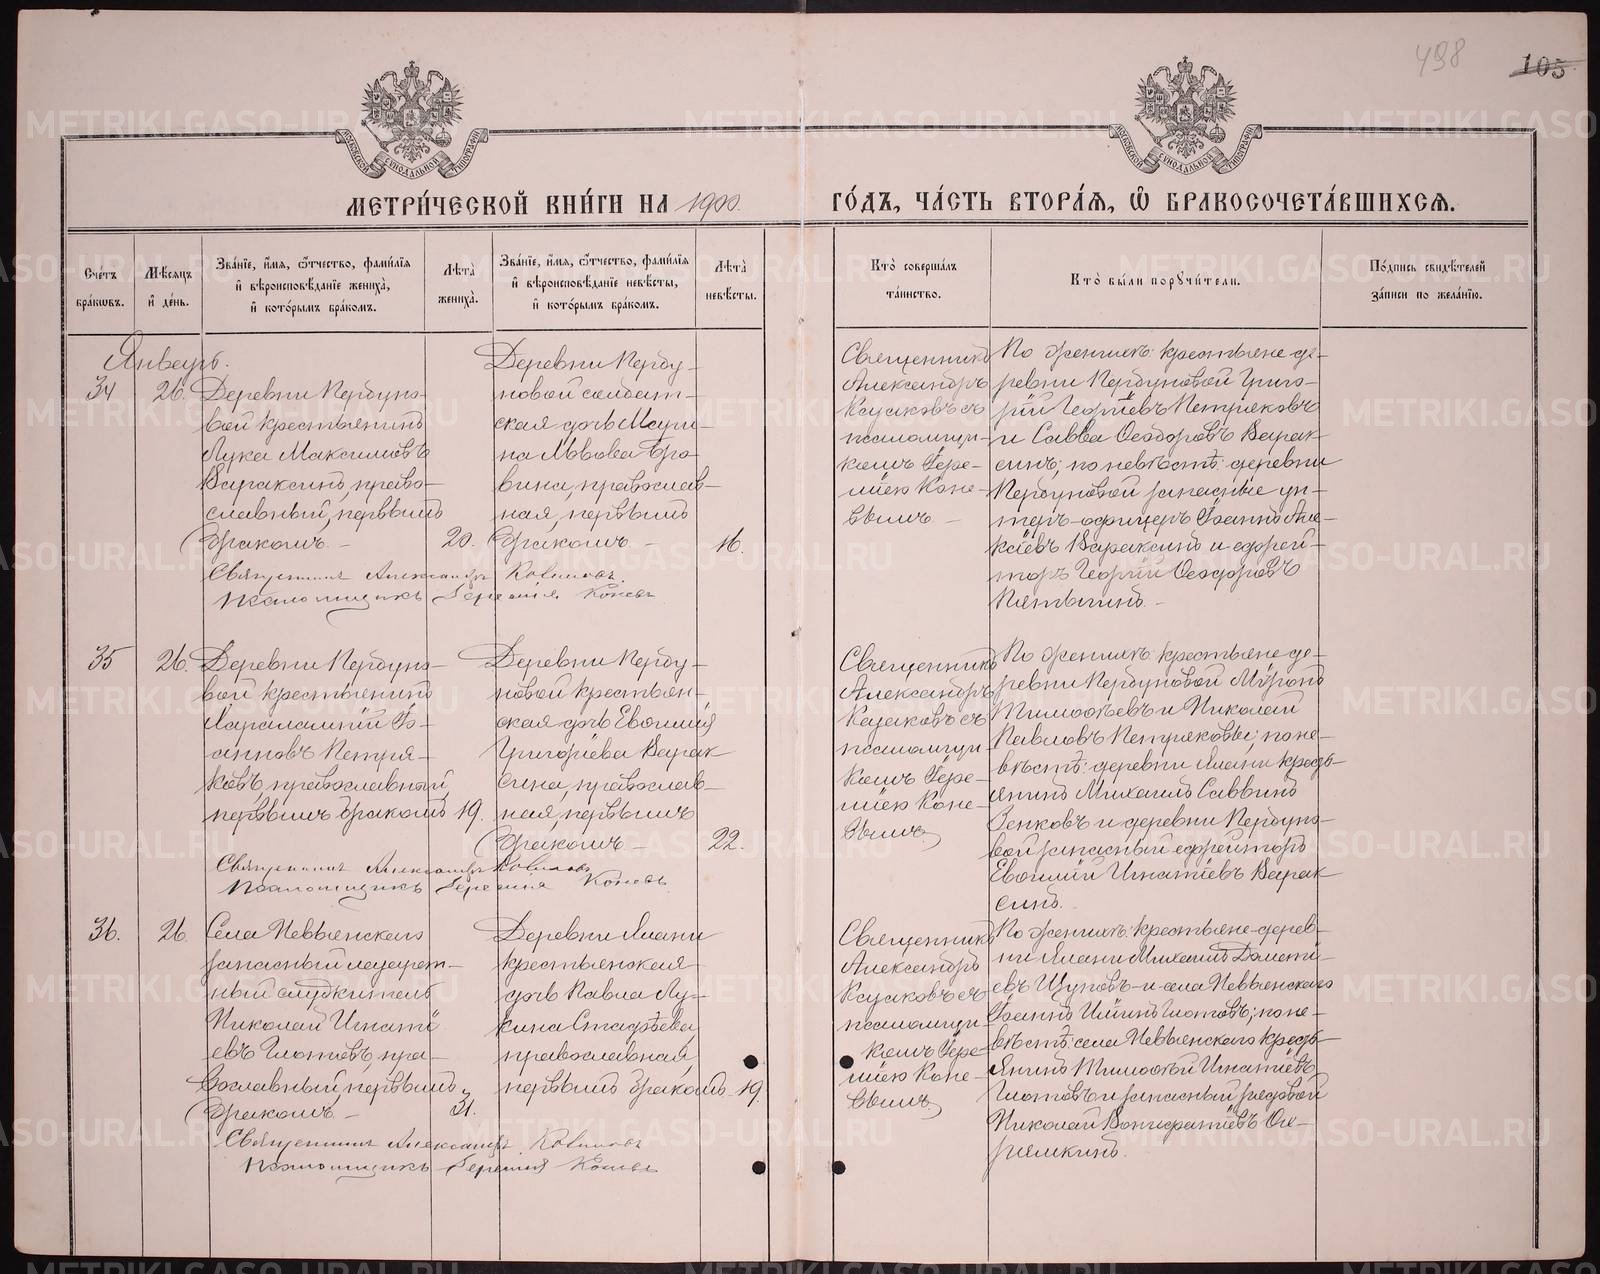 498
105
МОСКОВСКОЙ СѴНОДАЛЬНОЙ ТИПОГРАФІИ
МОСКОВСКОЙ СѴНОДАЛЬНОЙ ТИПОГРАФІИ
МЕТРИ́ЧЕСКОЙ КНИ́ГИ НА 1900
ГО́ДЪ, ЧА́СТЬ ВТОРА́Ѧ, Ѽ БРАКОСОЧЕТА́ВШИХСѦ.
Сче́тъ бра́кωвъ.
Мѣ́сяцъ и҆ де́нь.
Зва́нїе, и҆́мѧ, ѻ҆́тчество, фами́лїѧ
и҆ вѣроисповѣ́данїе жениха̀,
и҆ кото́рымъ бра́комъ.
Лѣ́та жениха̀.
Зва́нїе, и҆́мѧ, ѻ҆́тчество, фами́лїѧ
и҆ вѣроисповѣ́данїе невѣ́сты,
и҆ кото́рымъ бра́комъ.
Лѣ́та невѣ́сты.
Кто̀ соверша́лъ та́инство.
Кто̀ бы́ли порꙋчи́тели.
По́дпись свидѣ́телей за́писи по жела́нїю.
Январь.
34
26.
Деревни Першуно-
вой крестьянинъ
Лука Максимовъ
Вараксинъ, право-
славный, первымъ
бракомъ. —
20.
Деревни Першу-
новой солдат-
ская дочь
Львова
православ-
ная, первымъ
бракомъ. —
16.
Священникъ
Александръ
съ
псаломщи-
комъ Іере-
міею Коне-
вымъ. —
По женихѣ: крестьяне де-
ревни Першуновой Григо-
рій Георгіевъ Петряковъ
и Савва Ѳеодоровъ Варак-
синъ; по невѣстѣ: деревни
Першуновой запасные ун-
теръ-офицеръ Іоаннъ Але-
ксіевъ Вараксинъ и ефрей-
торъ Георгій Ѳеодоровъ
Пятыгинъ. —
Священникъ Александръ
Псаломщикъ Іеремія Коневъ
35
26.
Деревни Першуно-
вой крестьянинъ
Харалампій Іо-
анновъ Петря-
ковъ, православный,
первымъ бракомъ
19.
Деревни Першу-
новой крестьян-
ская дочь Евѳимія
Григоріева Варак-
сина, православ-
ная, первымъ
бракомъ —
22.
Священникъ
Александръ
съ
псаломщи-
комъ Іере-
міею Коне-
вымъ.
По женихѣ: крестьяне де-
ревни Першуновой Мѵронъ
Тимоѳеевъ и Николай
Павловъ Петряковы; по не-
вѣстѣ: деревни Ялани кресть-
янинъ Михаилъ Саввинъ
Зенковъ и деревни Першуно-
вой запасный ефрейторъ
Евѳимій Игнатіевъ Варак-
синъ.
Священникъ Александръ
Псаломщикъ Іеремія Коневъ
36.
26
Села Невьянскаго
запасный лазарет-
ный служитель
Николай Игнаті-
евъ Глотовъ, пра-
вославный, первымъ
бракомъ. —
31.
Деревни Ялани
крестьянская
дочь Павла Лу-
кина Стадѣева,
православная,
первымъ бракомъ
19.
Священникъ
Александръ
съ
псаломщи-
комъ Іере-
міею Коне-
вымъ.
По женихѣ: крестьяне дерев-
ни Ялани Михаилъ Дометі-
евъ Щуповъ и села Невьянскаго
Іоаннъ Иліинъ Глотовъ; по не-
вѣстѣ: села Невьянскаго кресть-
янинъ Тимоѳей Игнатіевъ
Глотовъ и запасный рядовой
Николай Вонифатіевъ
Священникъ Александръ
Псаломщикъ Іеремія Коневъ
METRIKI.GASO-URAL.RU